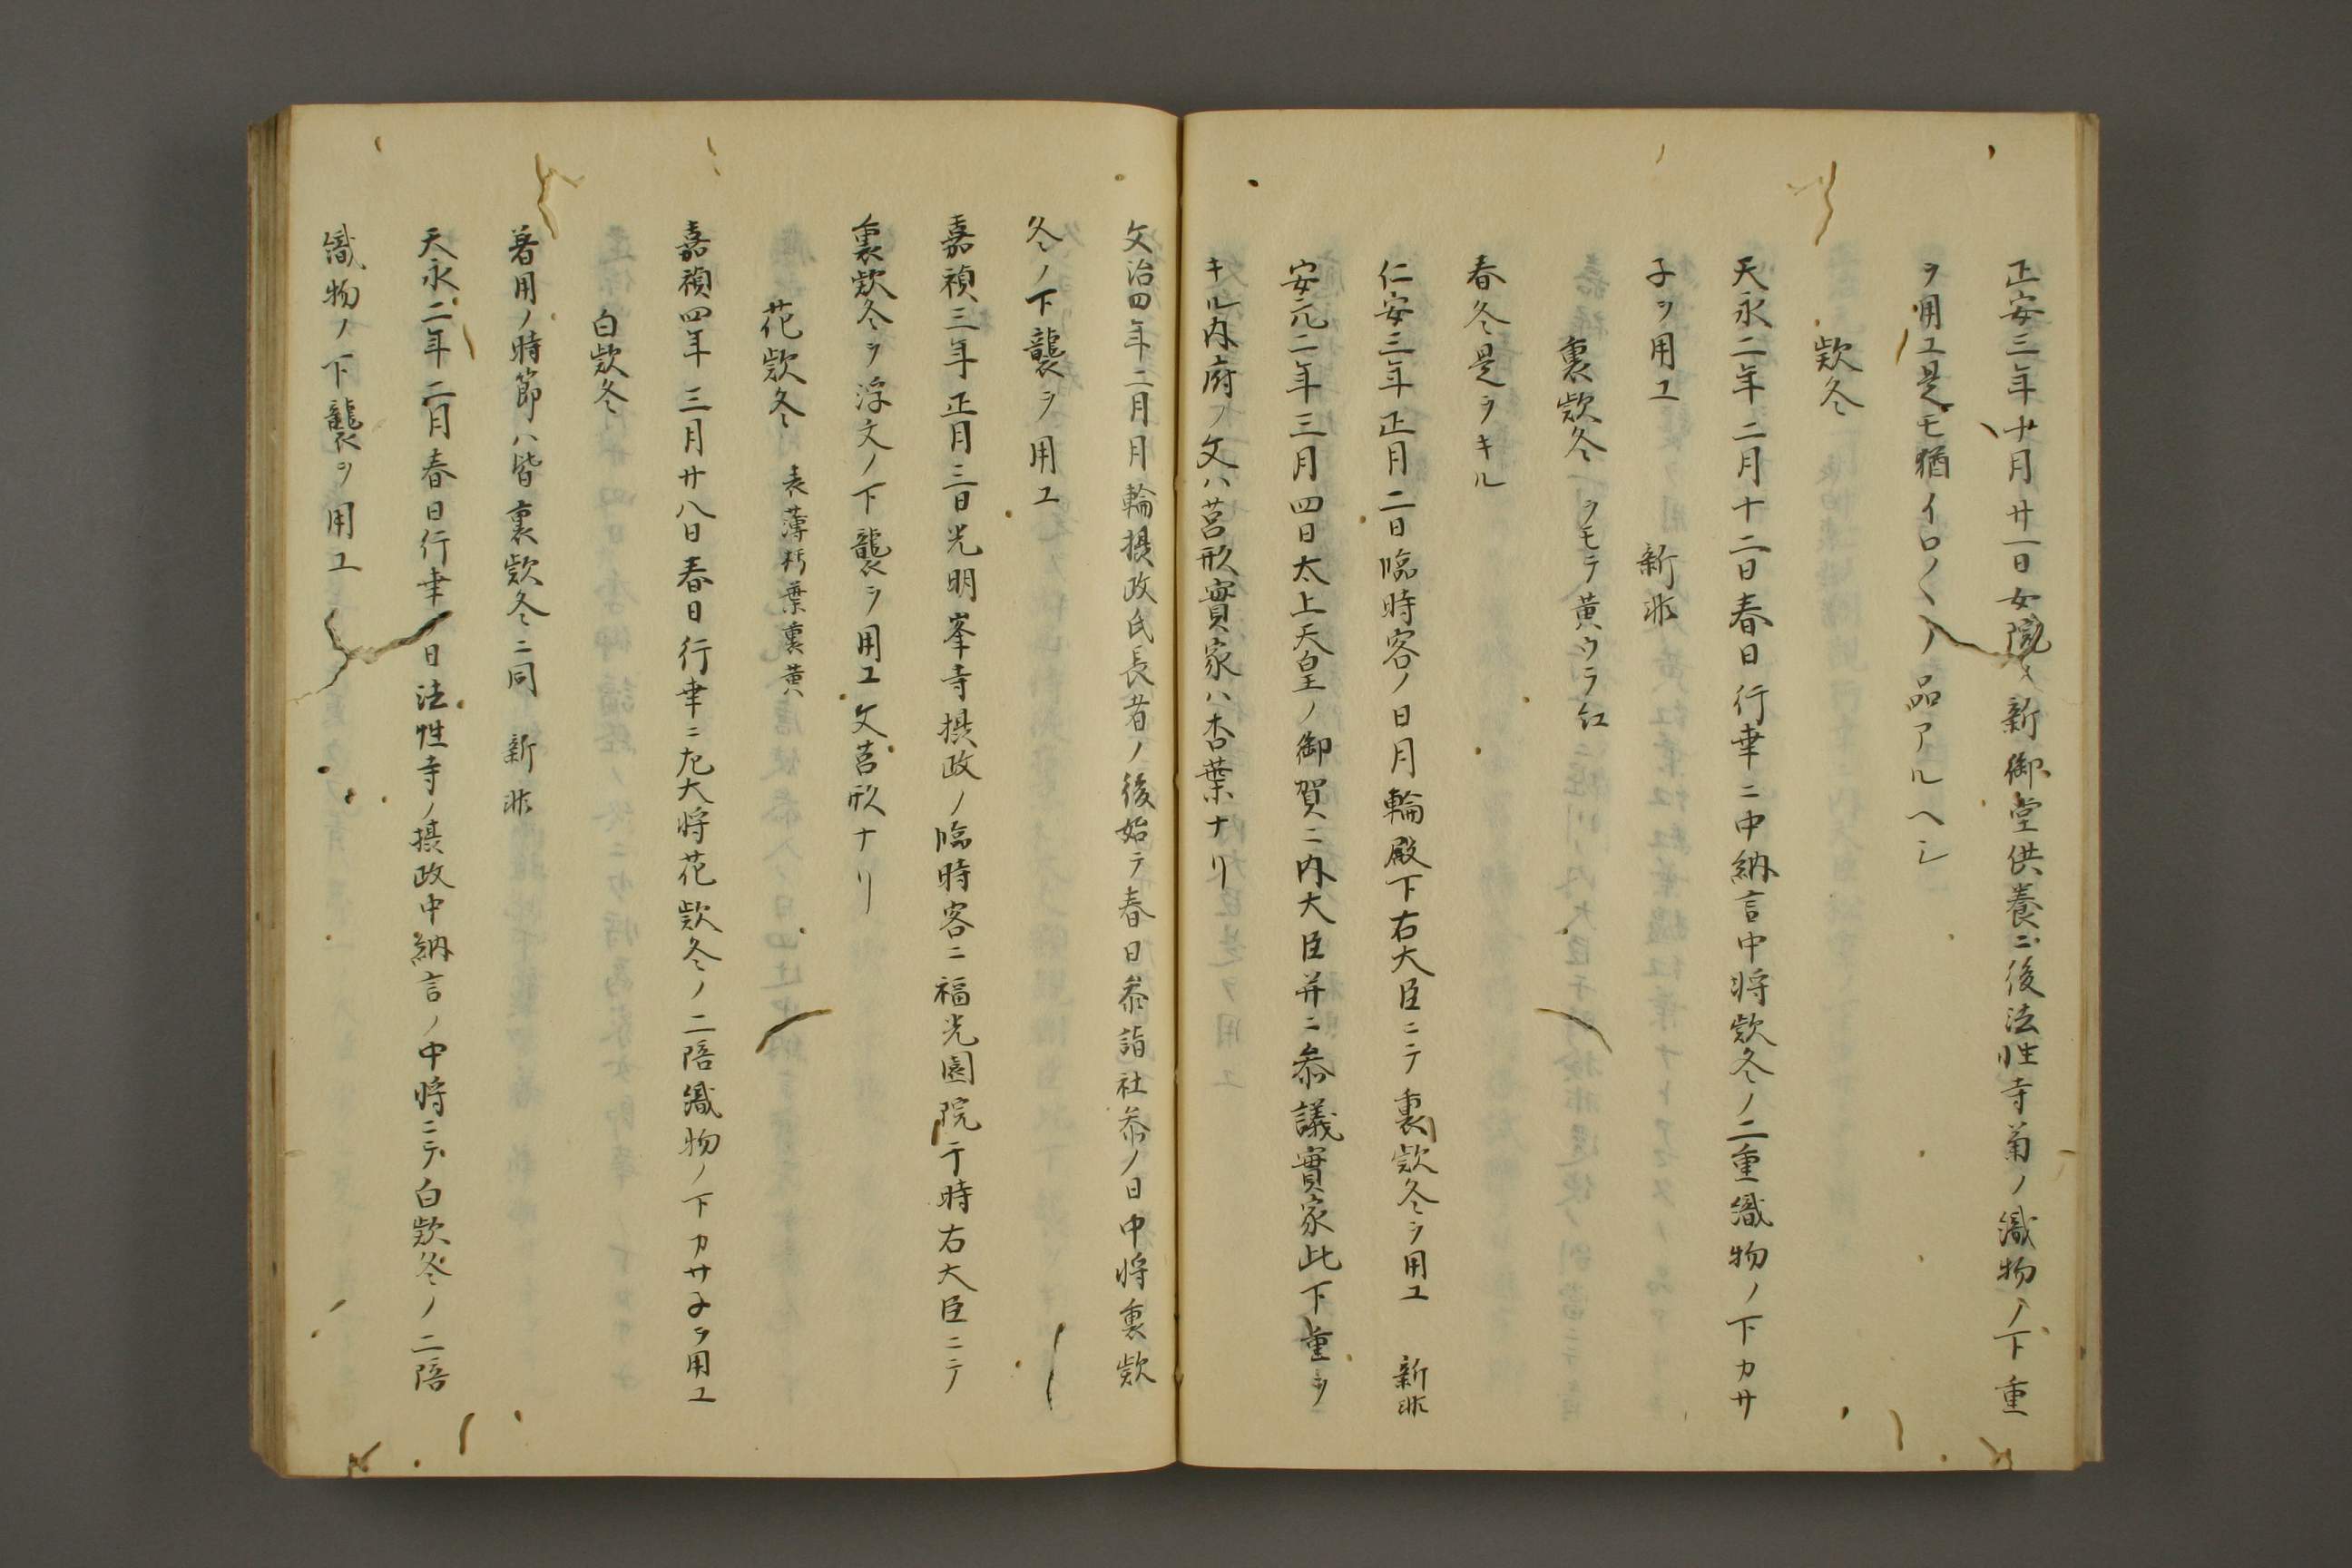 正安三年十月廿一日女院新御堂供養ニ後法性寺菊ノ織物ノ下重
ヲ用ユ是モ猶イロ〱ノ品アルヘシ
欵冬
天永二年二月十二日春日行幸ニ中納言中将欵冬ノ二重織物ノ下カサ
子ヲ用ユ　新非
裏欵冬　ヲモテ黄ウラ紅
春冬是ヲキル
仁安三年正月二日臨時客ノ日月輪殿下右大臣ニテ裏欵冬ヲ用ユ　新非
安元二年三月四日太上天皇ノ御賀ニ内大臣并ニ参議實家此下重ヲ
キル内府ノ文ハ莒形實家ハ杏葉ナリ
文治四年二月月輪摂政氏長者ノ後始テ春日参詣社参ノ日中将裏欵
冬ノ下襲ヲ用ユ
嘉禎三年正月三日光明峯寺摂政ノ臨時客ニ福光園院于時右大臣ニテ
裏欵冬ヲ浮文ノ下襲ヲ用ユ文莒形ナリ
花欵冬　表薄朽葉裏黄
嘉禎四年三月廿八日春日行幸ニ左大将花欵冬ノ二陪織物ノ下カサ子ヲ用ユ
白欵冬
着用ノ時節ハ皆裏欵冬ニ同　新非
天永二年二月春日行幸日法性寺ノ摂政中納言ノ中将ニテ白欵冬ノ二陪
織物ノ下襲ヲ用ユ